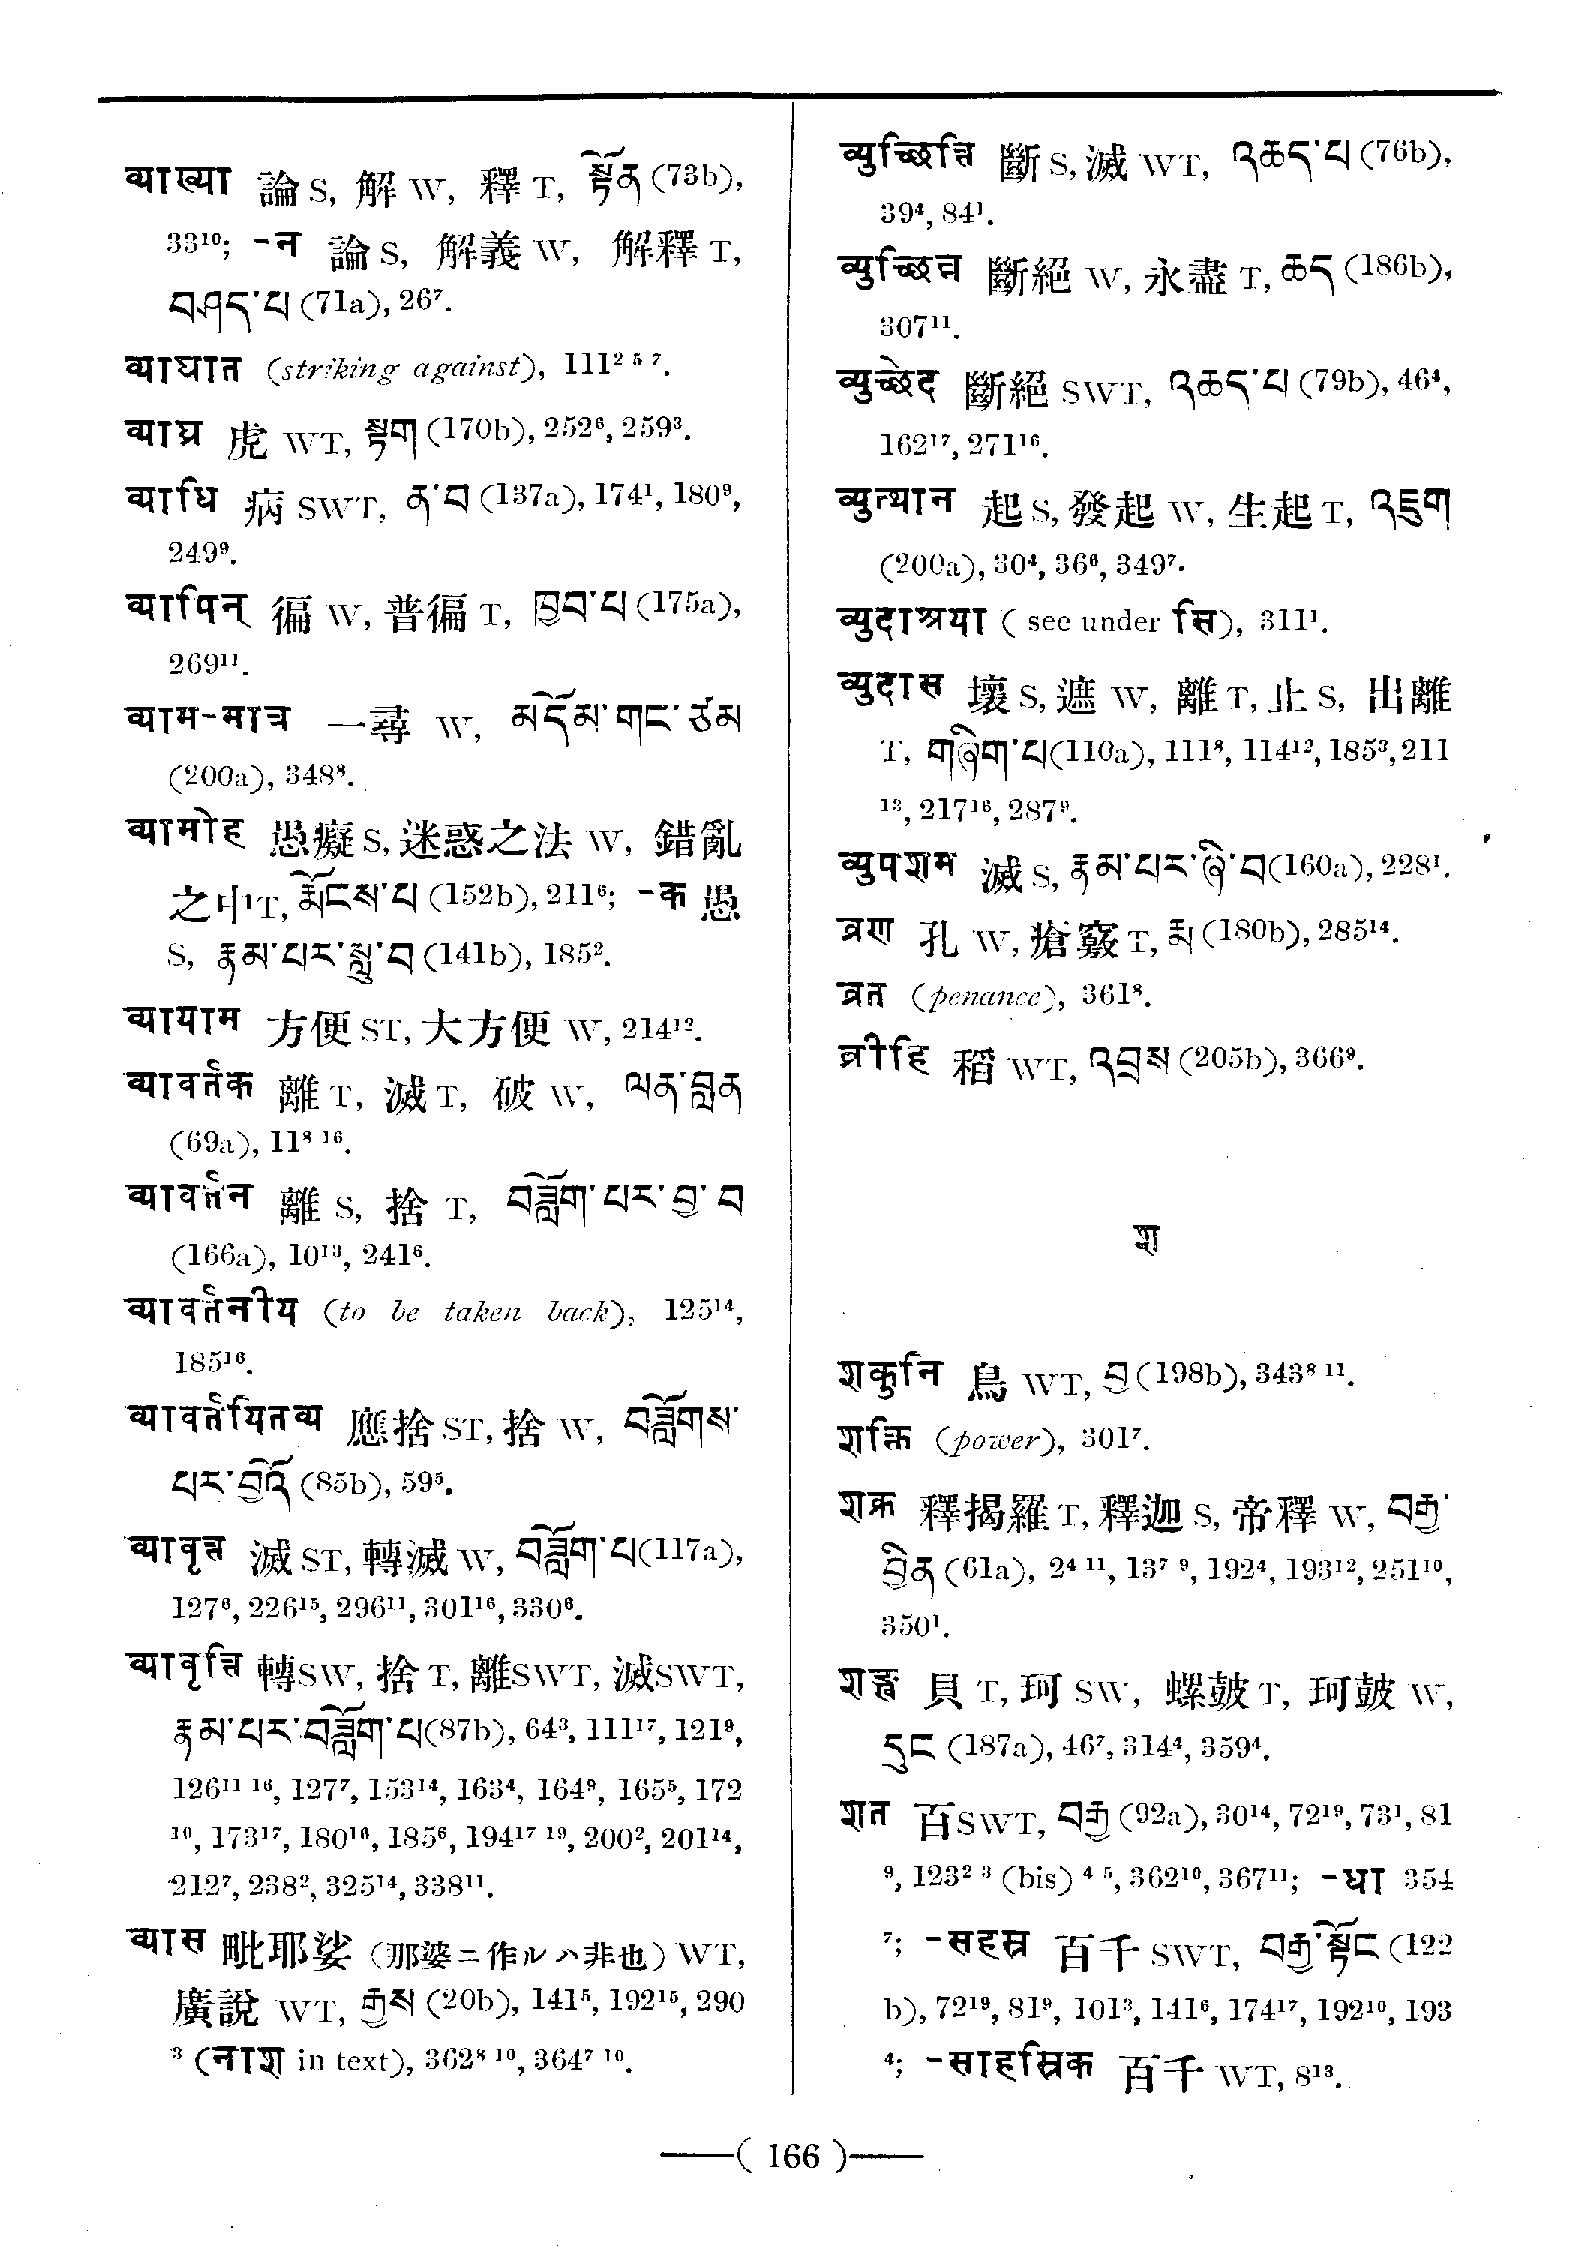 व्याख्या 論 S, 解 W, 釋 T, སྟོན (73b),
33¹⁰; -न 論 S, 解義 W, 解釋 T,
བཤད་པ (71a), 26⁷.
व्याघात (striking against), 111² ⁵ ⁷.
व्याघ्र 虎 WT, སྟག (170b), 252⁶, 259³.
व्याधि 病 SWT, ན་བ (137a), 174¹, 180⁹,
249⁹.
व्यापिन् 徧 W, 普徧 T, ཁྱབ་པ (175a),
269¹¹.
व्याम-मात्र 一尋 W, མདོམ་གང་ཙམ
(200a), 348⁸.
व्यामोह 愚癡 S, 迷惑之法 W, 錯亂
之中 T, རྨོངས་པ (152b), 211⁶; -क 愚
S, རྣམ་པར་སླུ་བ (141b), 185².
व्यायाम 方便 ST, 大方便 W, 214¹².
व्यावर्तक 離 T, 滅 T, 破 W, ལན་བླན
(69a), 11⁸ ¹⁶.
व्यावर्तन 離 S, 捨 T, བཟློག་པར་བྱ་བ
(166a), 10¹³, 241⁶.
व्यावर्तनीय (to be taken back), 125¹⁴,
185¹⁶.
व्यावर्तयितव्य 應捨 ST, 捨 W, བཟློགས་
པར་བྱིའོ (85b), 59⁵.
व्यावृत्त 滅 ST, 轉滅 W, བཟློག་པ (117a),
127⁶, 226¹⁵, 296¹¹, 301¹⁶, 330⁶.
व्यावृत्ति 轉 SW, 捨 T, 離 SWT, 滅 SWT,
རྣམ་པར་བཟློག་པ (87b), 64³, 111¹⁷, 121⁹,
126¹¹ ¹⁶, 127⁷, 153¹⁴, 163⁴, 164⁹, 165⁵, 172
¹⁰, 173¹⁷, 180¹⁶, 185⁶, 194¹⁷ ¹⁹, 200², 201¹⁴,
212⁷, 238², 325¹⁴, 338¹¹.
व्यास 毗耶娑 (那婆ニ作ルハ非也) WT,
廣說 WT, རྒྱས (20b), 141⁵, 192¹⁵, 290
³ (नाश in text), 362⁸ ¹⁰, 364⁷ ¹⁰.
व्युच्छित्ति 斷 S, 滅 WT, འཆད་པ (76b),
39⁴, 84¹.
व्युच्छिन्न 斷絕 W, 永盡 T, ཆད (186b),
307¹¹.
व्युच्छेद 斷絕 SWT, འཆད་པ (79b), 46⁴,
162¹⁷, 271¹⁶.
व्युत्थान 起 S, 發起 W, 生起 T, འཇུག
(200a), 30⁴, 36⁶, 349⁷.
व्युदाश्रया ( see under सि), 311¹.
व्युदास 壞 S, 遮 W, 離 T, 止 S, 出離
T, གཞིག་པ (110a), 111⁸, 114¹², 185³, 211
¹³, 217¹⁶, 287⁹.
व्युपशम 滅 S, རྣམ་པར་ཞི་བ (160a), 228¹.
व्रण 孔 W, 瘡竅 T, རྨ (180b), 285¹⁴.
व्रत (penance), 361⁸.
व्रीहि 稻 WT, འབྲས (205b), 366⁹.
श
शकुनि 鳥 WT, བྱ (198b), 343⁸ ¹¹.
शक्ति (power), 301⁷.
शक्र 釋揭羅 T, 釋迦 S, 帝釋 W, བརྒྱ་
བྱིན (61a), 2⁴ ¹¹, 13⁷ ⁹, 192⁴, 193¹², 251¹⁰,
350¹.
शङ्ख 貝 T, 珂 SW, 螺皷 T, 珂皷 W,
དུང (187a), 46⁷, 314⁴, 359⁴.
शत 百 SWT, བརྒྱ (92a), 30¹⁴, 72¹⁹, 73¹, 81
⁹, 123² ³ (bis) ⁴ ⁵, 362¹⁰, 367¹¹; -धा 354
⁷; -सहस्र 百千 SWT, བརྒྱ་སྟོང (122
b), 72¹⁹, 81⁹, 101³, 141⁶, 174¹⁷, 192¹⁰, 193
⁴; -साहस्रिक 百千 WT, 8¹³.
( 166 )